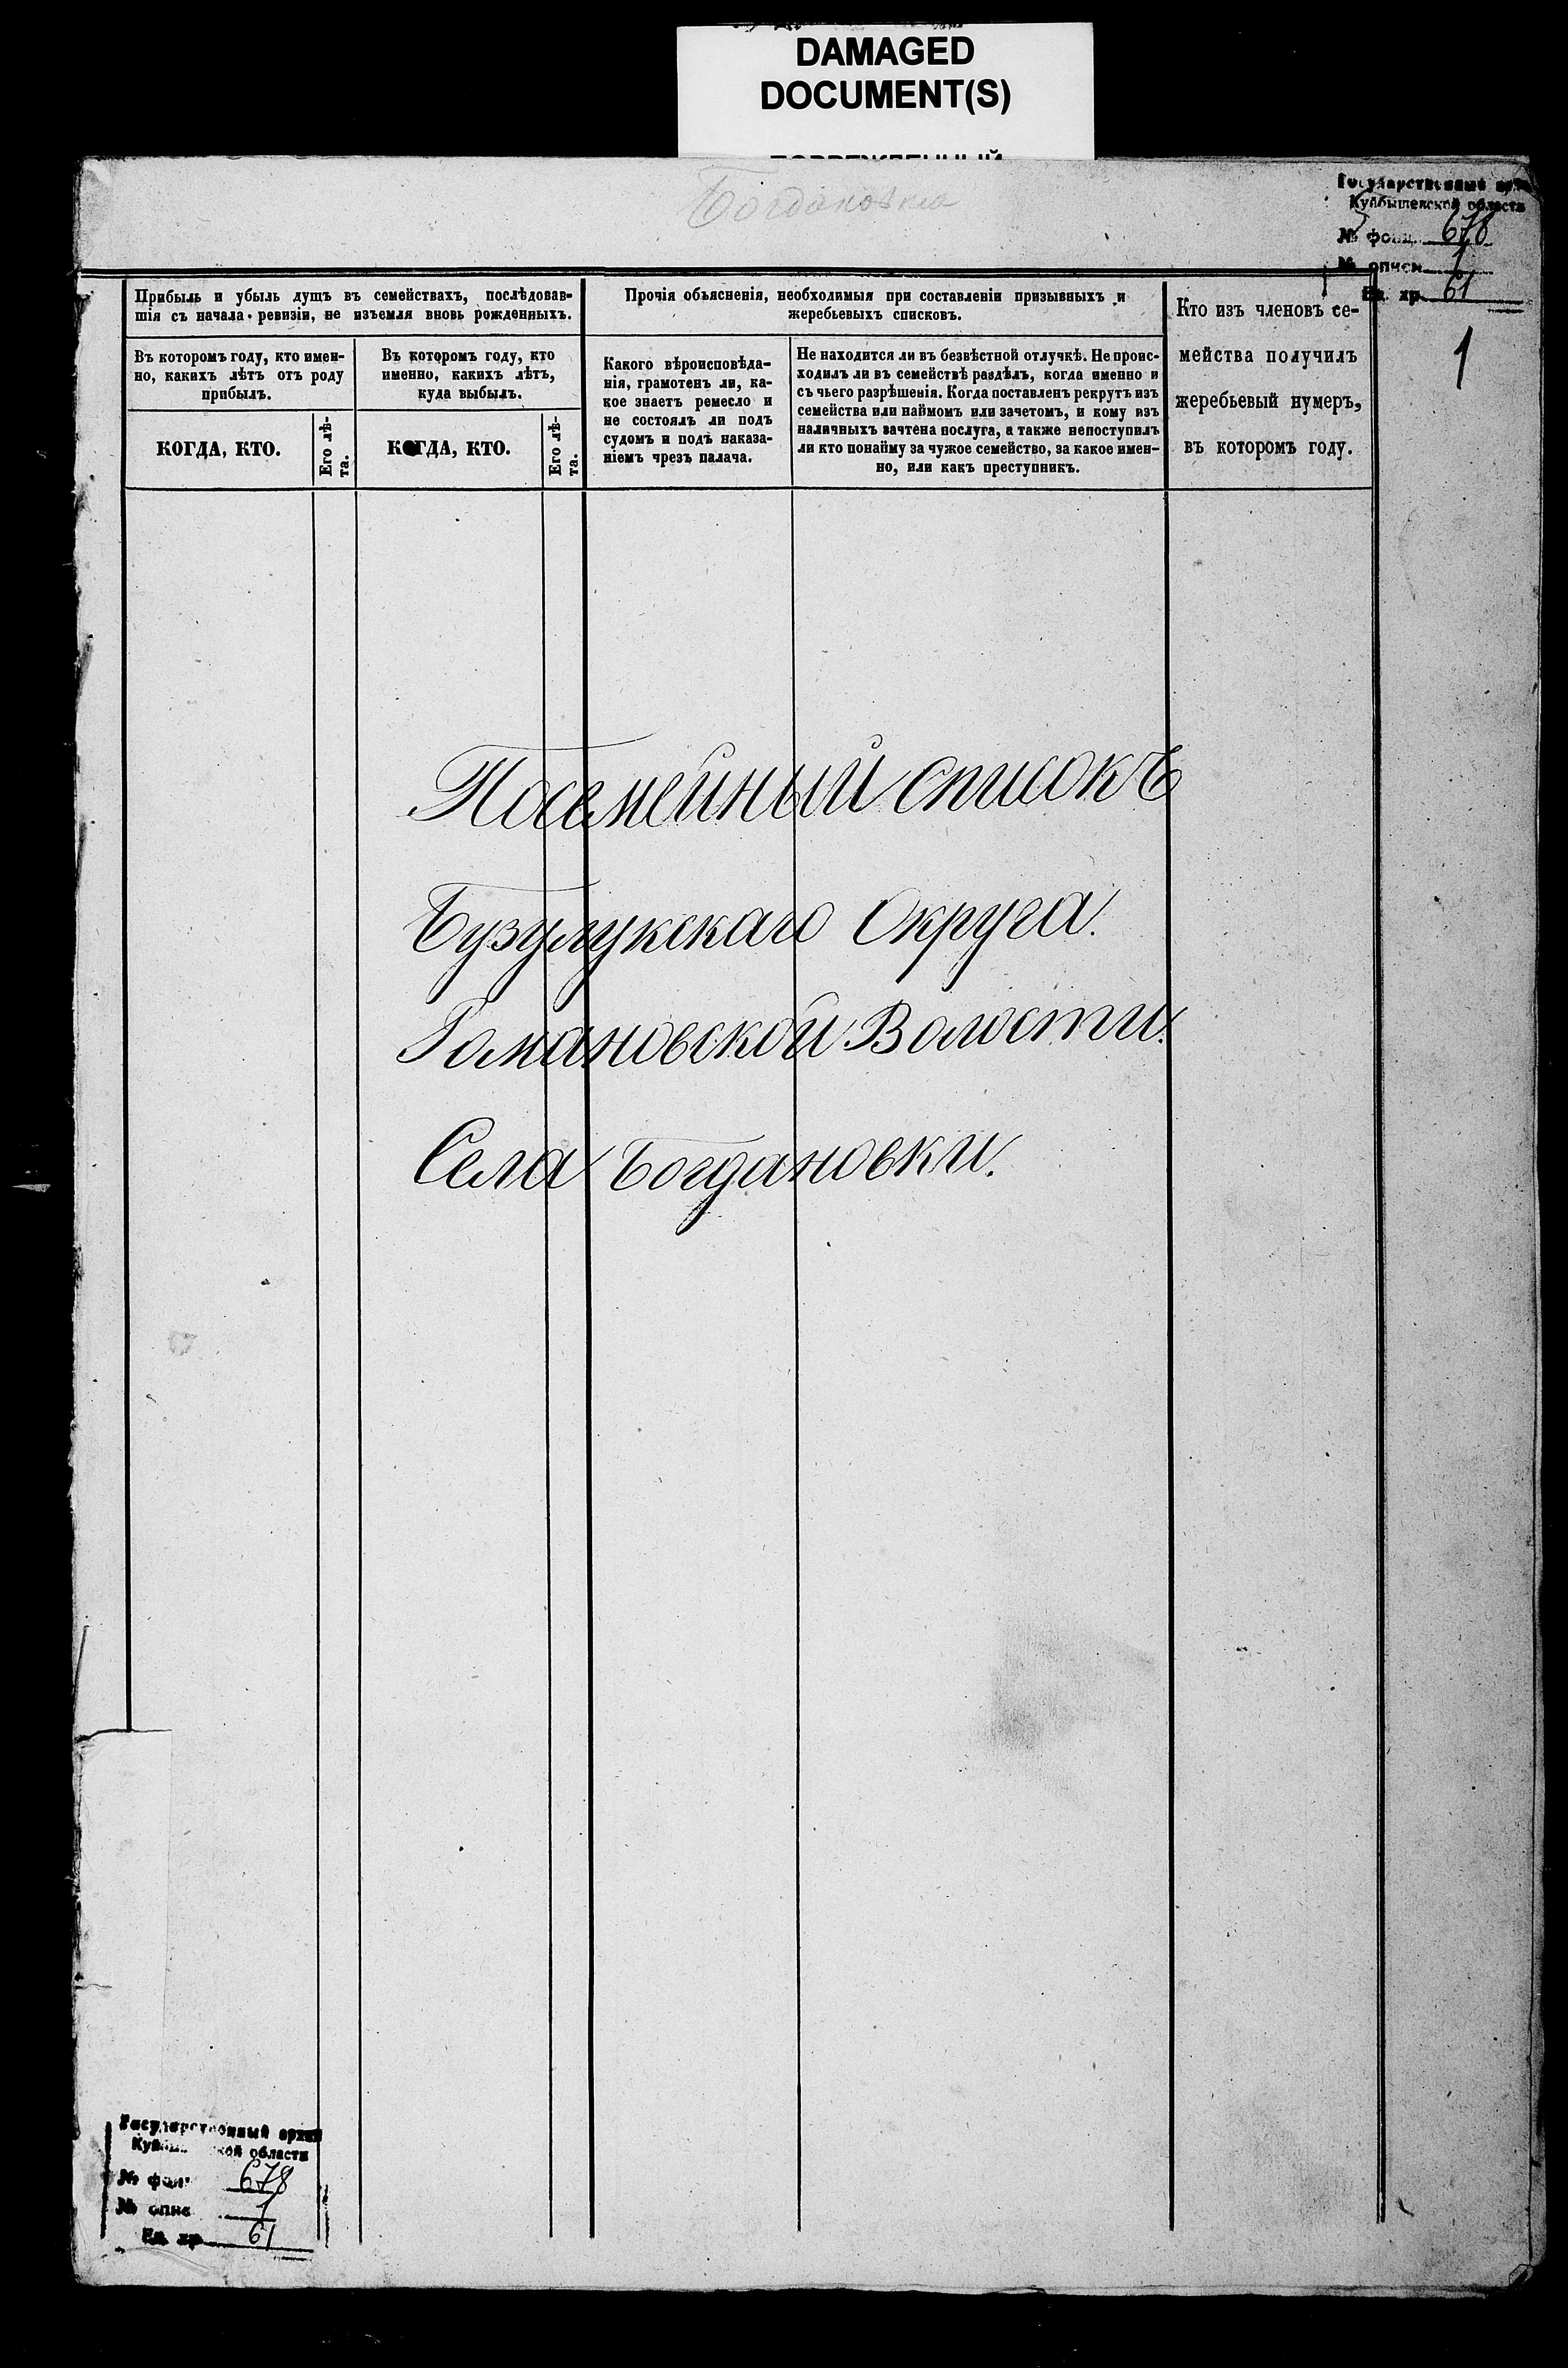 DAMAGED
DOCUMENT(S)
Богдановка
Государственный архив
Куйбышевской области
№ фонд. 678
№ описи 1
Ед. хр. 61
1
Прибыль и убыль душъ въ семействахъ, послѣдовав-
шія съ начала ревизіи, не изъемля вновь рожденныхъ.
Въ которомъ году, кто имен-
но, какихъ лѣтъ отъ роду
прибылъ.
КОГДА, КТО.
Его лѣ-
та.
Въ которомъ году, кто
именно, какихъ лѣтъ,
куда выбылъ.
КОГДА, КТО.
Его лѣ-
та.
Прочія объясненія, необходимыя при составленіи призывныхъ и
жеребьевыхъ списковъ.
Какого вѣроисповѣда-
нія, грамотенъ ли, ка-
кое знаетъ ремесло и
не состоялъ ли подъ
судомъ и подъ наказа-
ніемъ чрезъ палача.
Не находится ли въ безвѣстной отлучкѣ. Не проис-
ходилъ ли въ семействѣ раздѣлъ, когда именно и
съ чьего разрѣшенія. Когда поставленъ рекрутъ изъ
семейства или наймомъ или зачетомъ, и кому изъ
наличныхъ зачтена послуга, а также непоступилъ
ли кто понайму за чужое семейство, за какое имен-
но, или какъ преступникъ.
Кто изъ членовъ се-
мейства получилъ
жеребьевый нумеръ,
въ которомъ году.
Посемейный списокъ
Бузулукскаго Округа.
Романовской Волости.
Села Богдановки.
Государственный архив
Куйбышевской области
№ фон. 678
№ опис 1
Ед. хр. 61